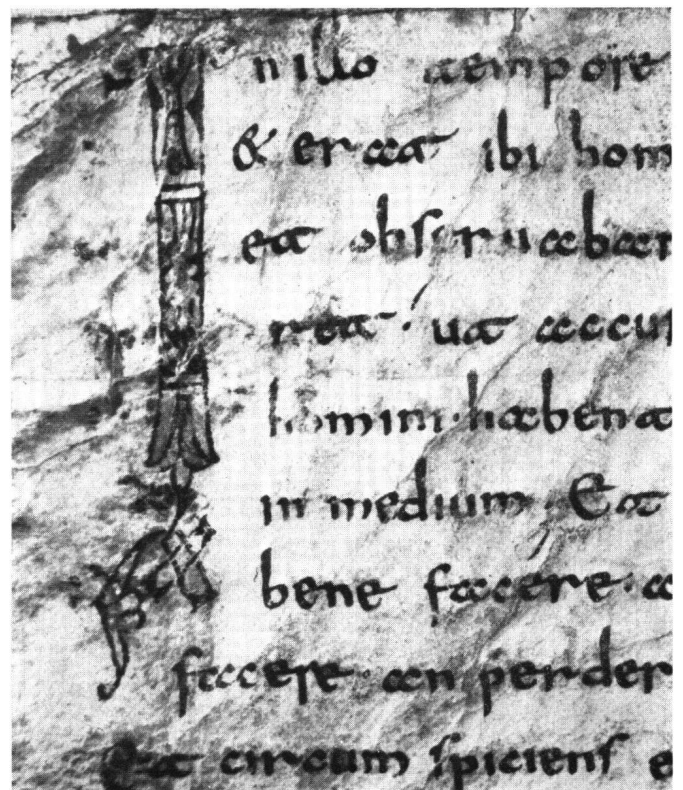 In illo tempore
& erat ibi hom
et obseruaban
ret · ut accu
homini · habent
in medium · Et
bene facere · a
facere · an perder
Et circum spiciens e